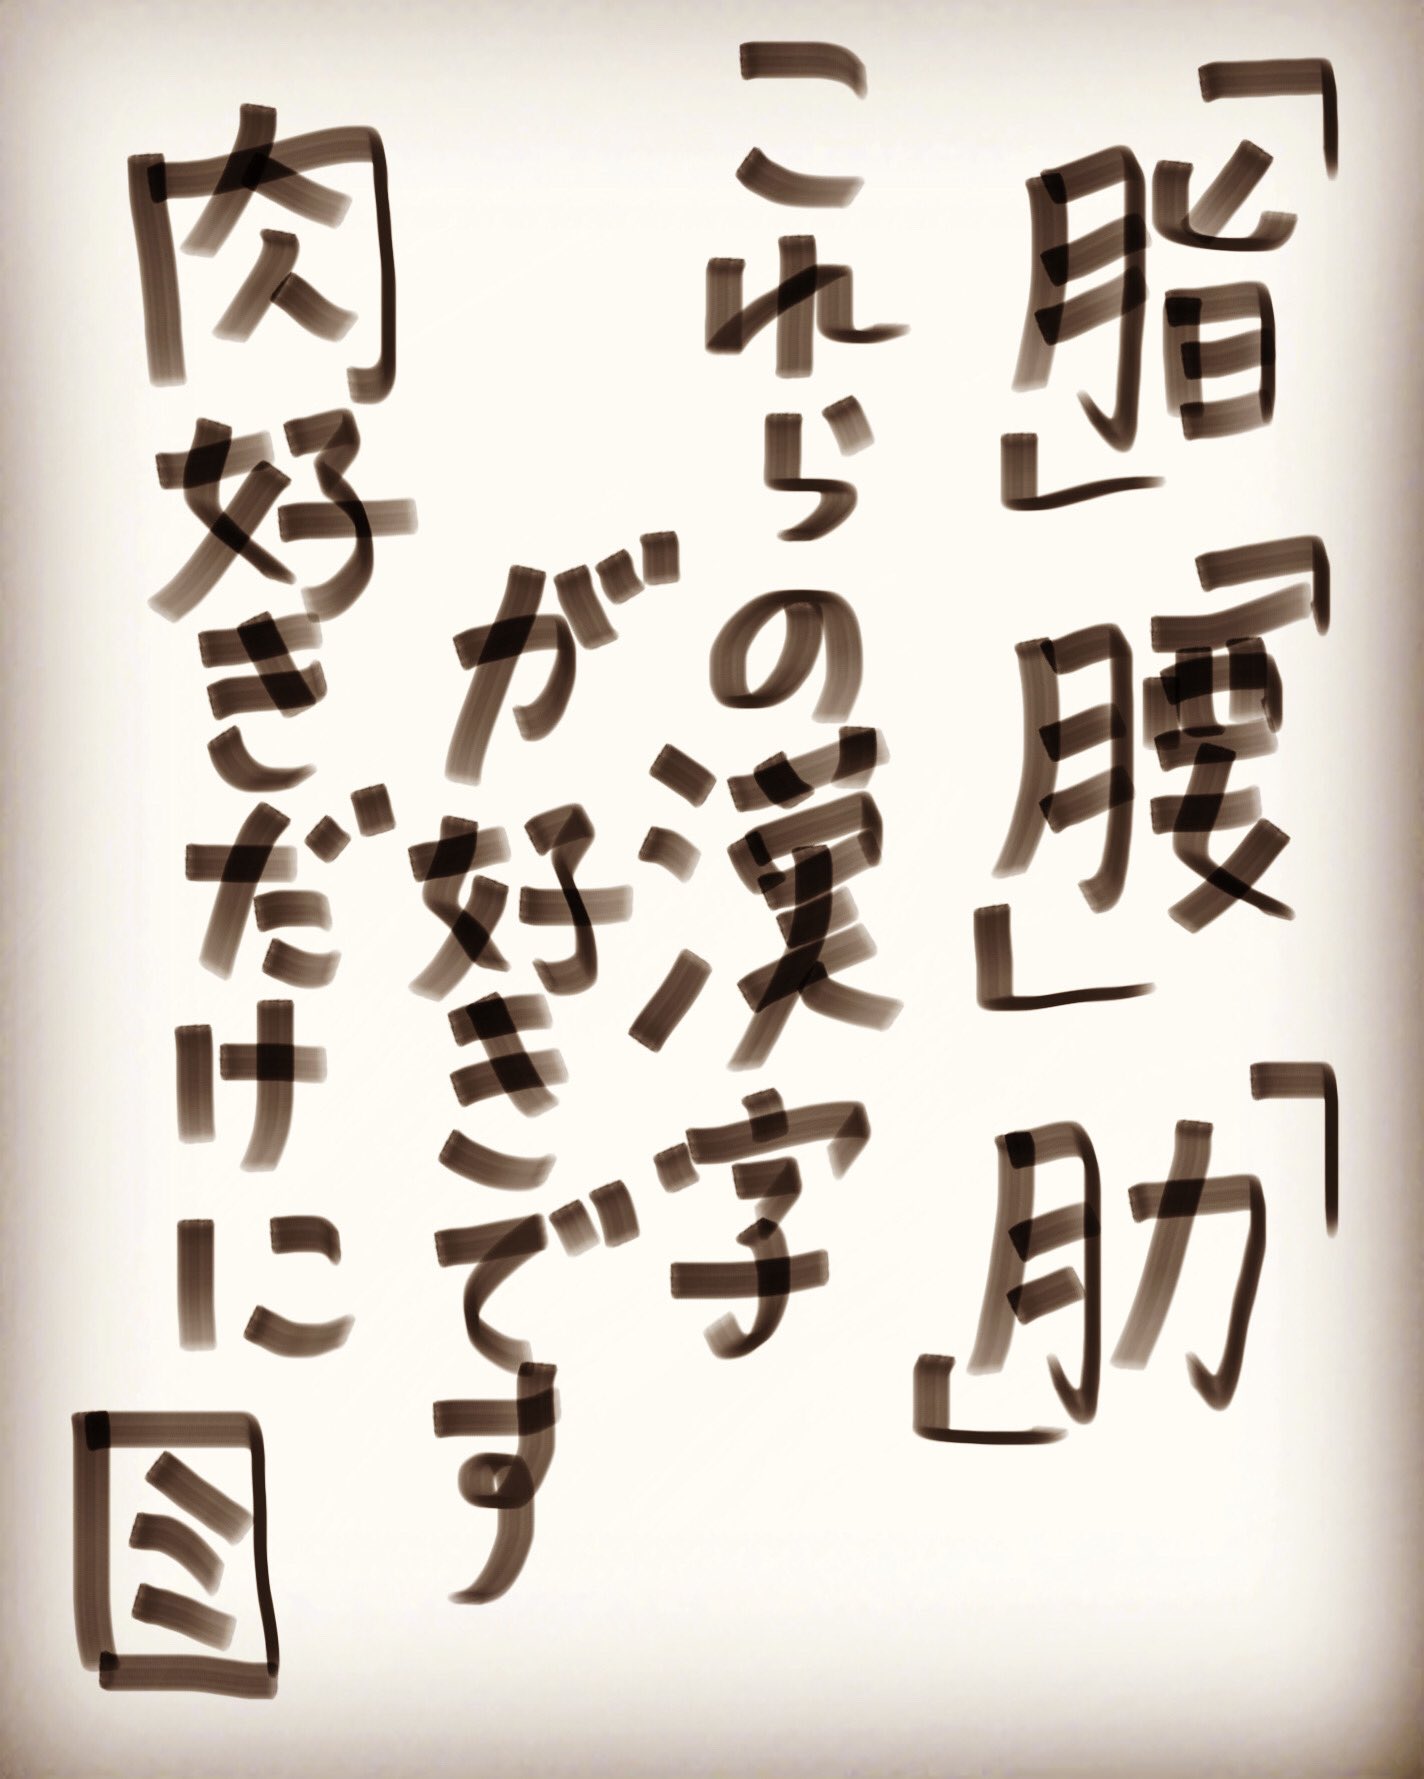 「脂」「腰」「肋」
これらの漢字
が好きです
肉好きだけに
ミ